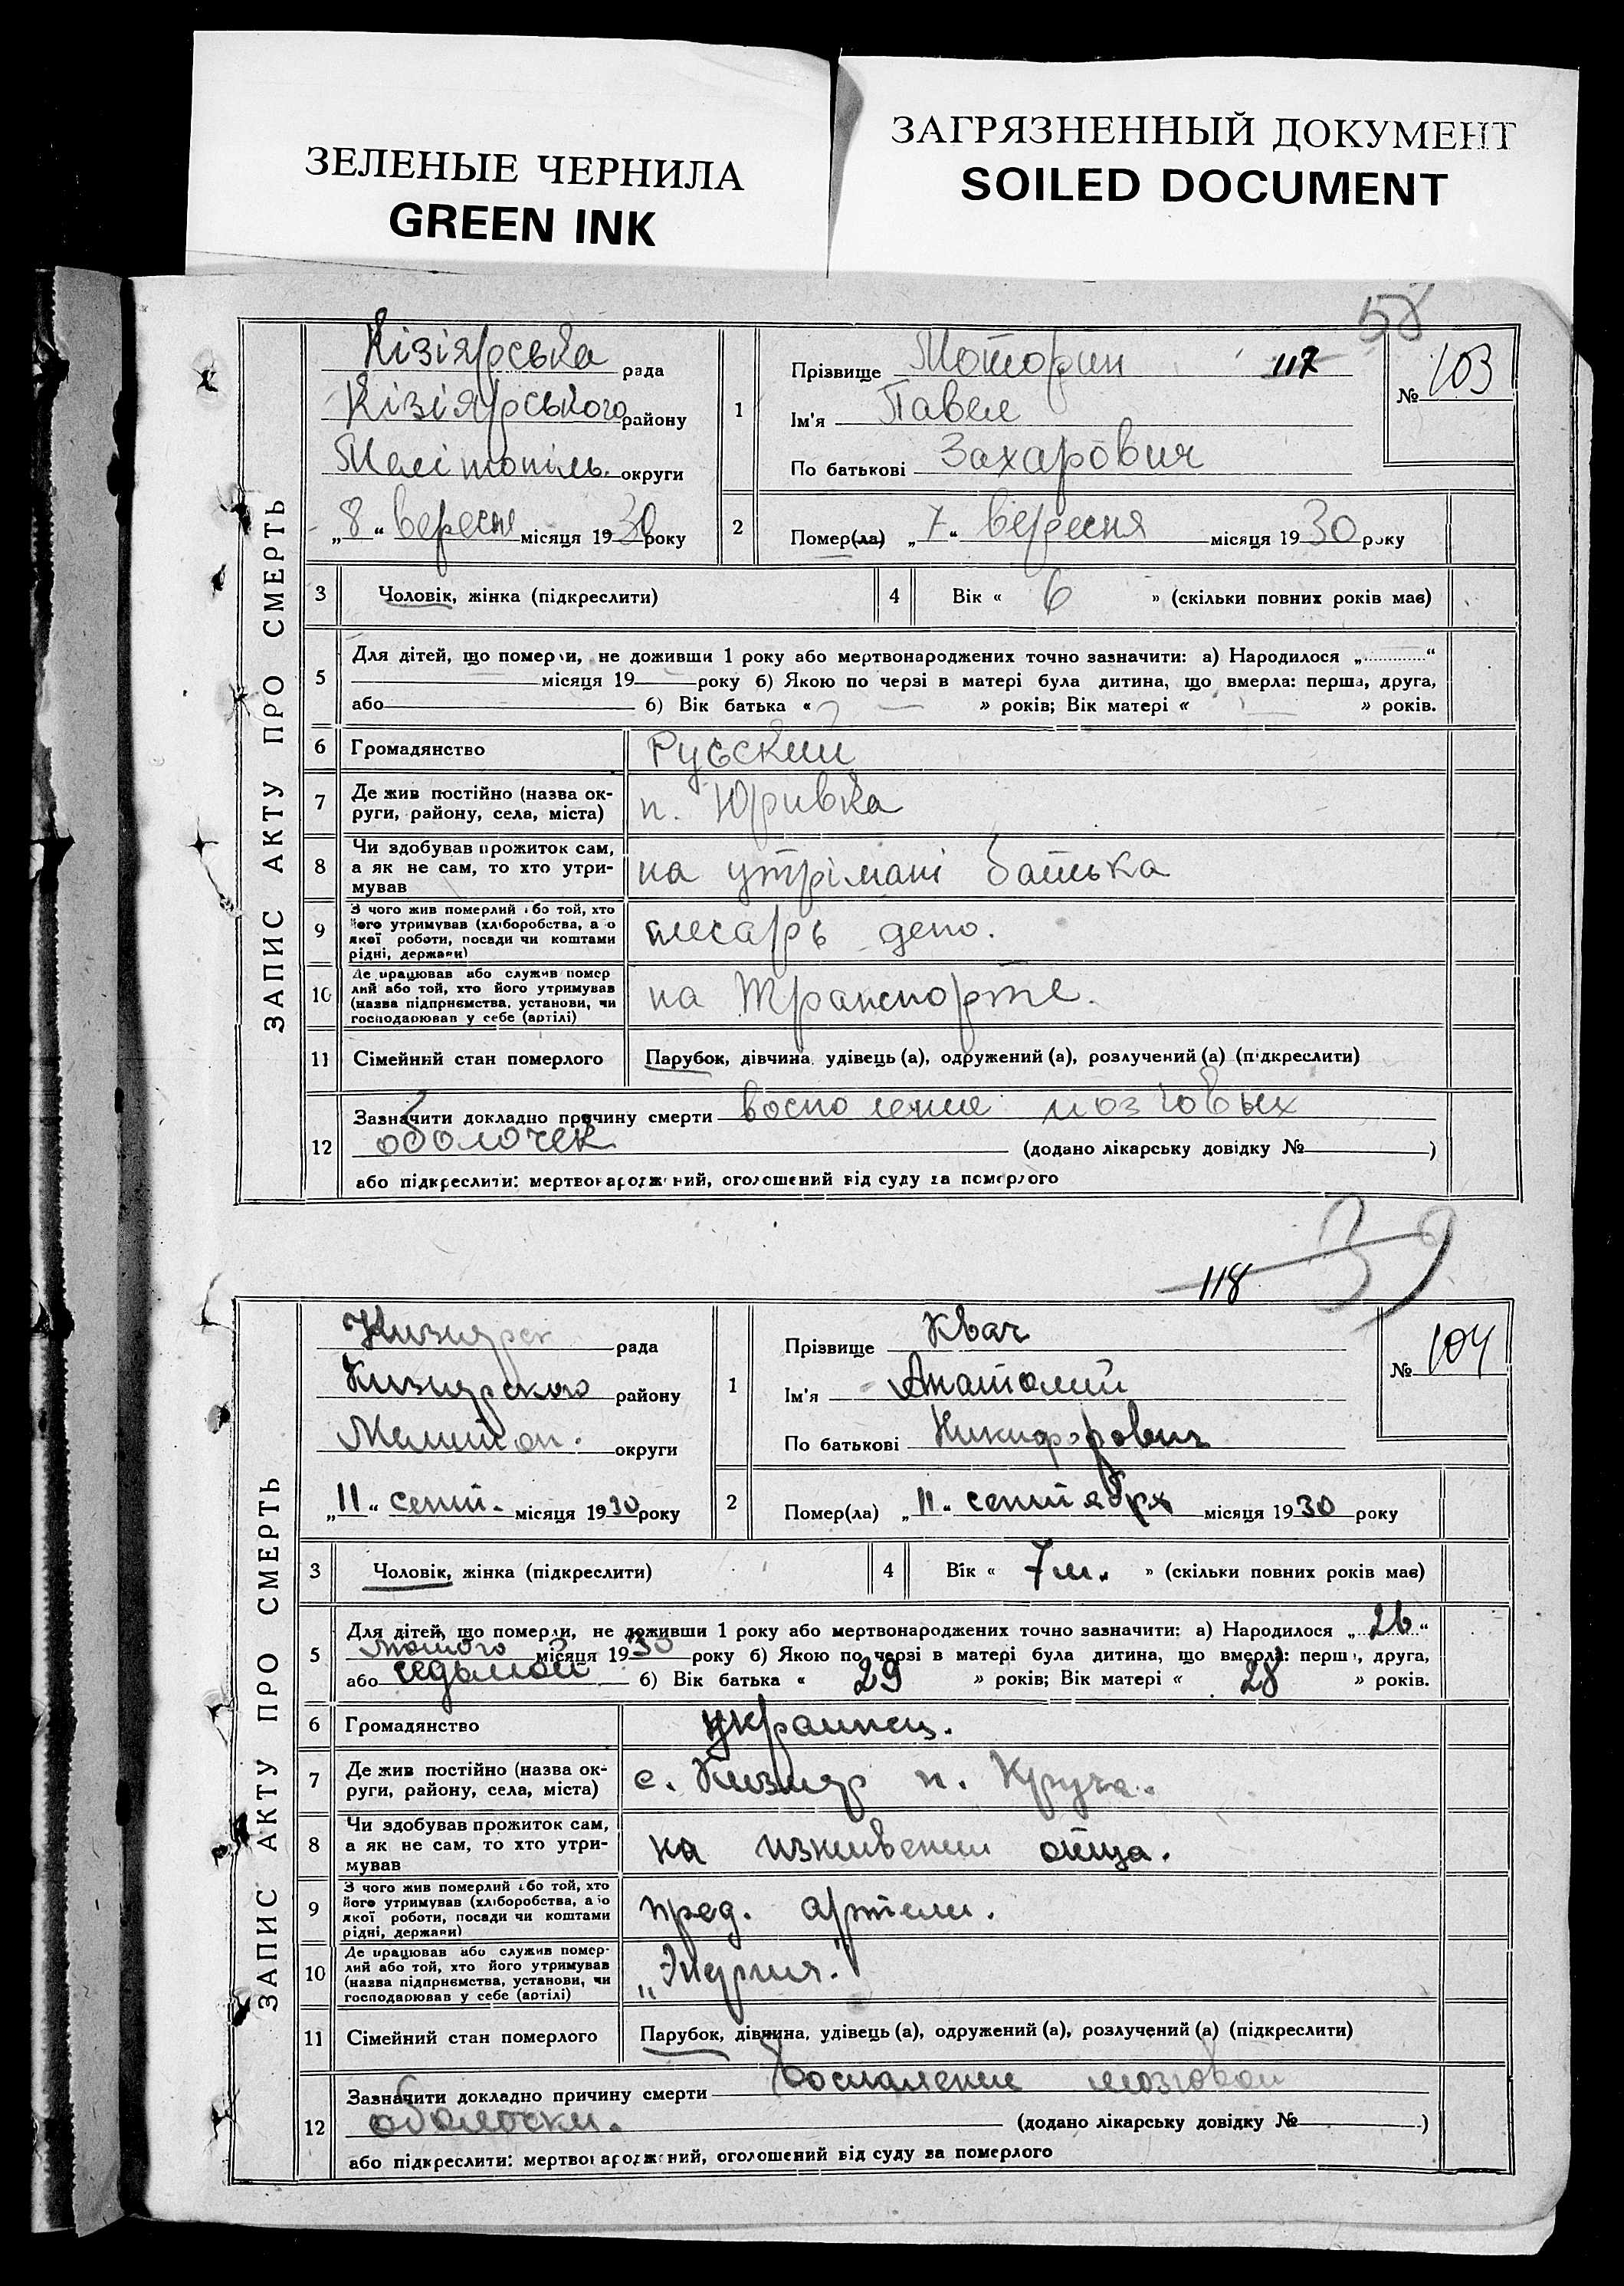 ЗЕЛЕНЫЕ ЧЕРНИЛА
GREEN INK
ЗАГРЯЗНЕННЫЙ ДОКУМЕНТ
SOILED DOCUMENT
58
ЗАПИС АКТУ ПРО СМЕРТЬ
Кізіярська рада
Кізіярського району
Мелітопіль. округи
„8“ вересня місяця 1930 року
1 Прізвище Моторин 117
Ім'я Павел
По батькові Захарович
№ 103
2 Помер(ла) „7“ вересня місяця 1930 року
3 Чоловік, жінка (підкреслити)
4 Вік « 6 » (скільки повних років має)
5 Для дітей, що померли, не доживши 1 року або мертвонароджених точно зазначити: а) Народилося „ “
місяця 19 року б) Якою по черзі в матері була дитина, що вмерла: перша, друга,
або б) Вік батька « » років; Вік матері « » років.
6 Громадянство Русский
7 Де жив постійно (назва округи, району, села, міста) п. Юривка
8 Чи здобував прожиток сам, а як не сам, то хто утримував на утрімані батька
9 З чого жив померлий або той, хто його утримував (хліборобства, або якої роботи, посади чи коштами рідні, держави) слесарь депо.
10 Де працював або служив померлий або той, хто його утримував (назва підприємства, установи, чи господарював у себе (артілі) на Транспорте.
11 Сімейний стан померлого Парубок, дівчина, удівець (а), одружений (а), розлучений (а) (підкреслити)
12 Зазначити докладно причину смерти восполение мозговых
оболочек (додано лікарську довідку № )
або підкреслити: мертвонароджений, оголошений від суду за померлого
118 39
ЗАПИС АКТУ ПРО СМЕРТЬ
Кизиярск рада
Кизиярского району
Мелитоп. округи
„11“ сент. місяця 1930 року
1 Прізвище Квач
Ім'я Анатолий
По батькові Никифорович
№ 104
2 Помер(ла) „11“ сентября місяця 1930 року
3 Чоловік, жінка (підкреслити)
4 Вік « 7 м. » (скільки повних років має)
5 Для дітей, що померли, не доживши 1 року або мертвонароджених точно зазначити: а) Народилося „26“
лютого місяця 1930 року б) Якою по черзі в матері була дитина, що вмерла: перша, друга,
або седьмой б) Вік батька « 29 » років; Вік матері « 28 » років.
6 Громадянство украинец.
7 Де жив постійно (назва округи, району, села, міста) с. Кизияр п. Круча.
8 Чи здобував прожиток сам, а як не сам, то хто утримував на изживении отца.
9 З чого жив померлий або той, хто його утримував (хліборобства, або якої роботи, посади чи коштами рідні, держави) пред. артели.
10 Де працював або служив померлий або той, хто його утримував (назва підприємства, установи, чи господарював у себе (артілі)
11 Сімейний стан померлого Парубок, дівчина, удівець (а), одружений (а), розлучений (а) (підкреслити)
12 Зазначити докладно причину смерти Воспаление мозговой
оболочки. (додано лікарську довідку № )
або підкреслити: мертвонароджений, оголошений від суду за померлого